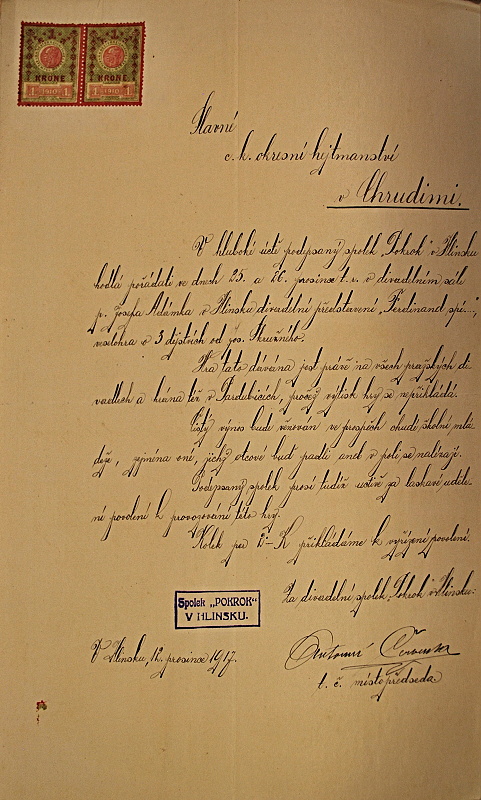 1 1
KRONE KRONE
1 1910 1 1 1910 1
Slavné
c. k. okresní hejtmanství
v Chrudimi.
V hluboké úctě podepsaný spolek „Pokrok“ v Hlinsku
hodlá pořádati ve dnech 25. a 26. prosince t. r. v divadelním sále
p. Josefa Adámka v Hlinsku divadelní představení „Ferdinand spí...“,
veselohra o 3 dějstvích od Jos. Skružného.
Hra tato dávána jest právě na všech pražských di
vadlech a hrána též v Pardubicích, pročež výtisk hry se nepřikládá.
Čistý výnos bude věnován ve prospěch chudé školní mlá
deže, zejména oné, jichž otcové buď padli aneb v poli se nalézají.
Podepsaný spolek prosí tudíž uctivě za laskavé uděle
ní povolení k provozování této hry.
Kolek per 2 - K přikládáme k vyřízení povolení.
Za divadelní spolek „Pokrok“ v Hlinsku:
Spolek „POKROK“
V HLINSKU.
V Hlinsku, 12. prosince 1917.
Antonín Červinka
t. č. místopředseda